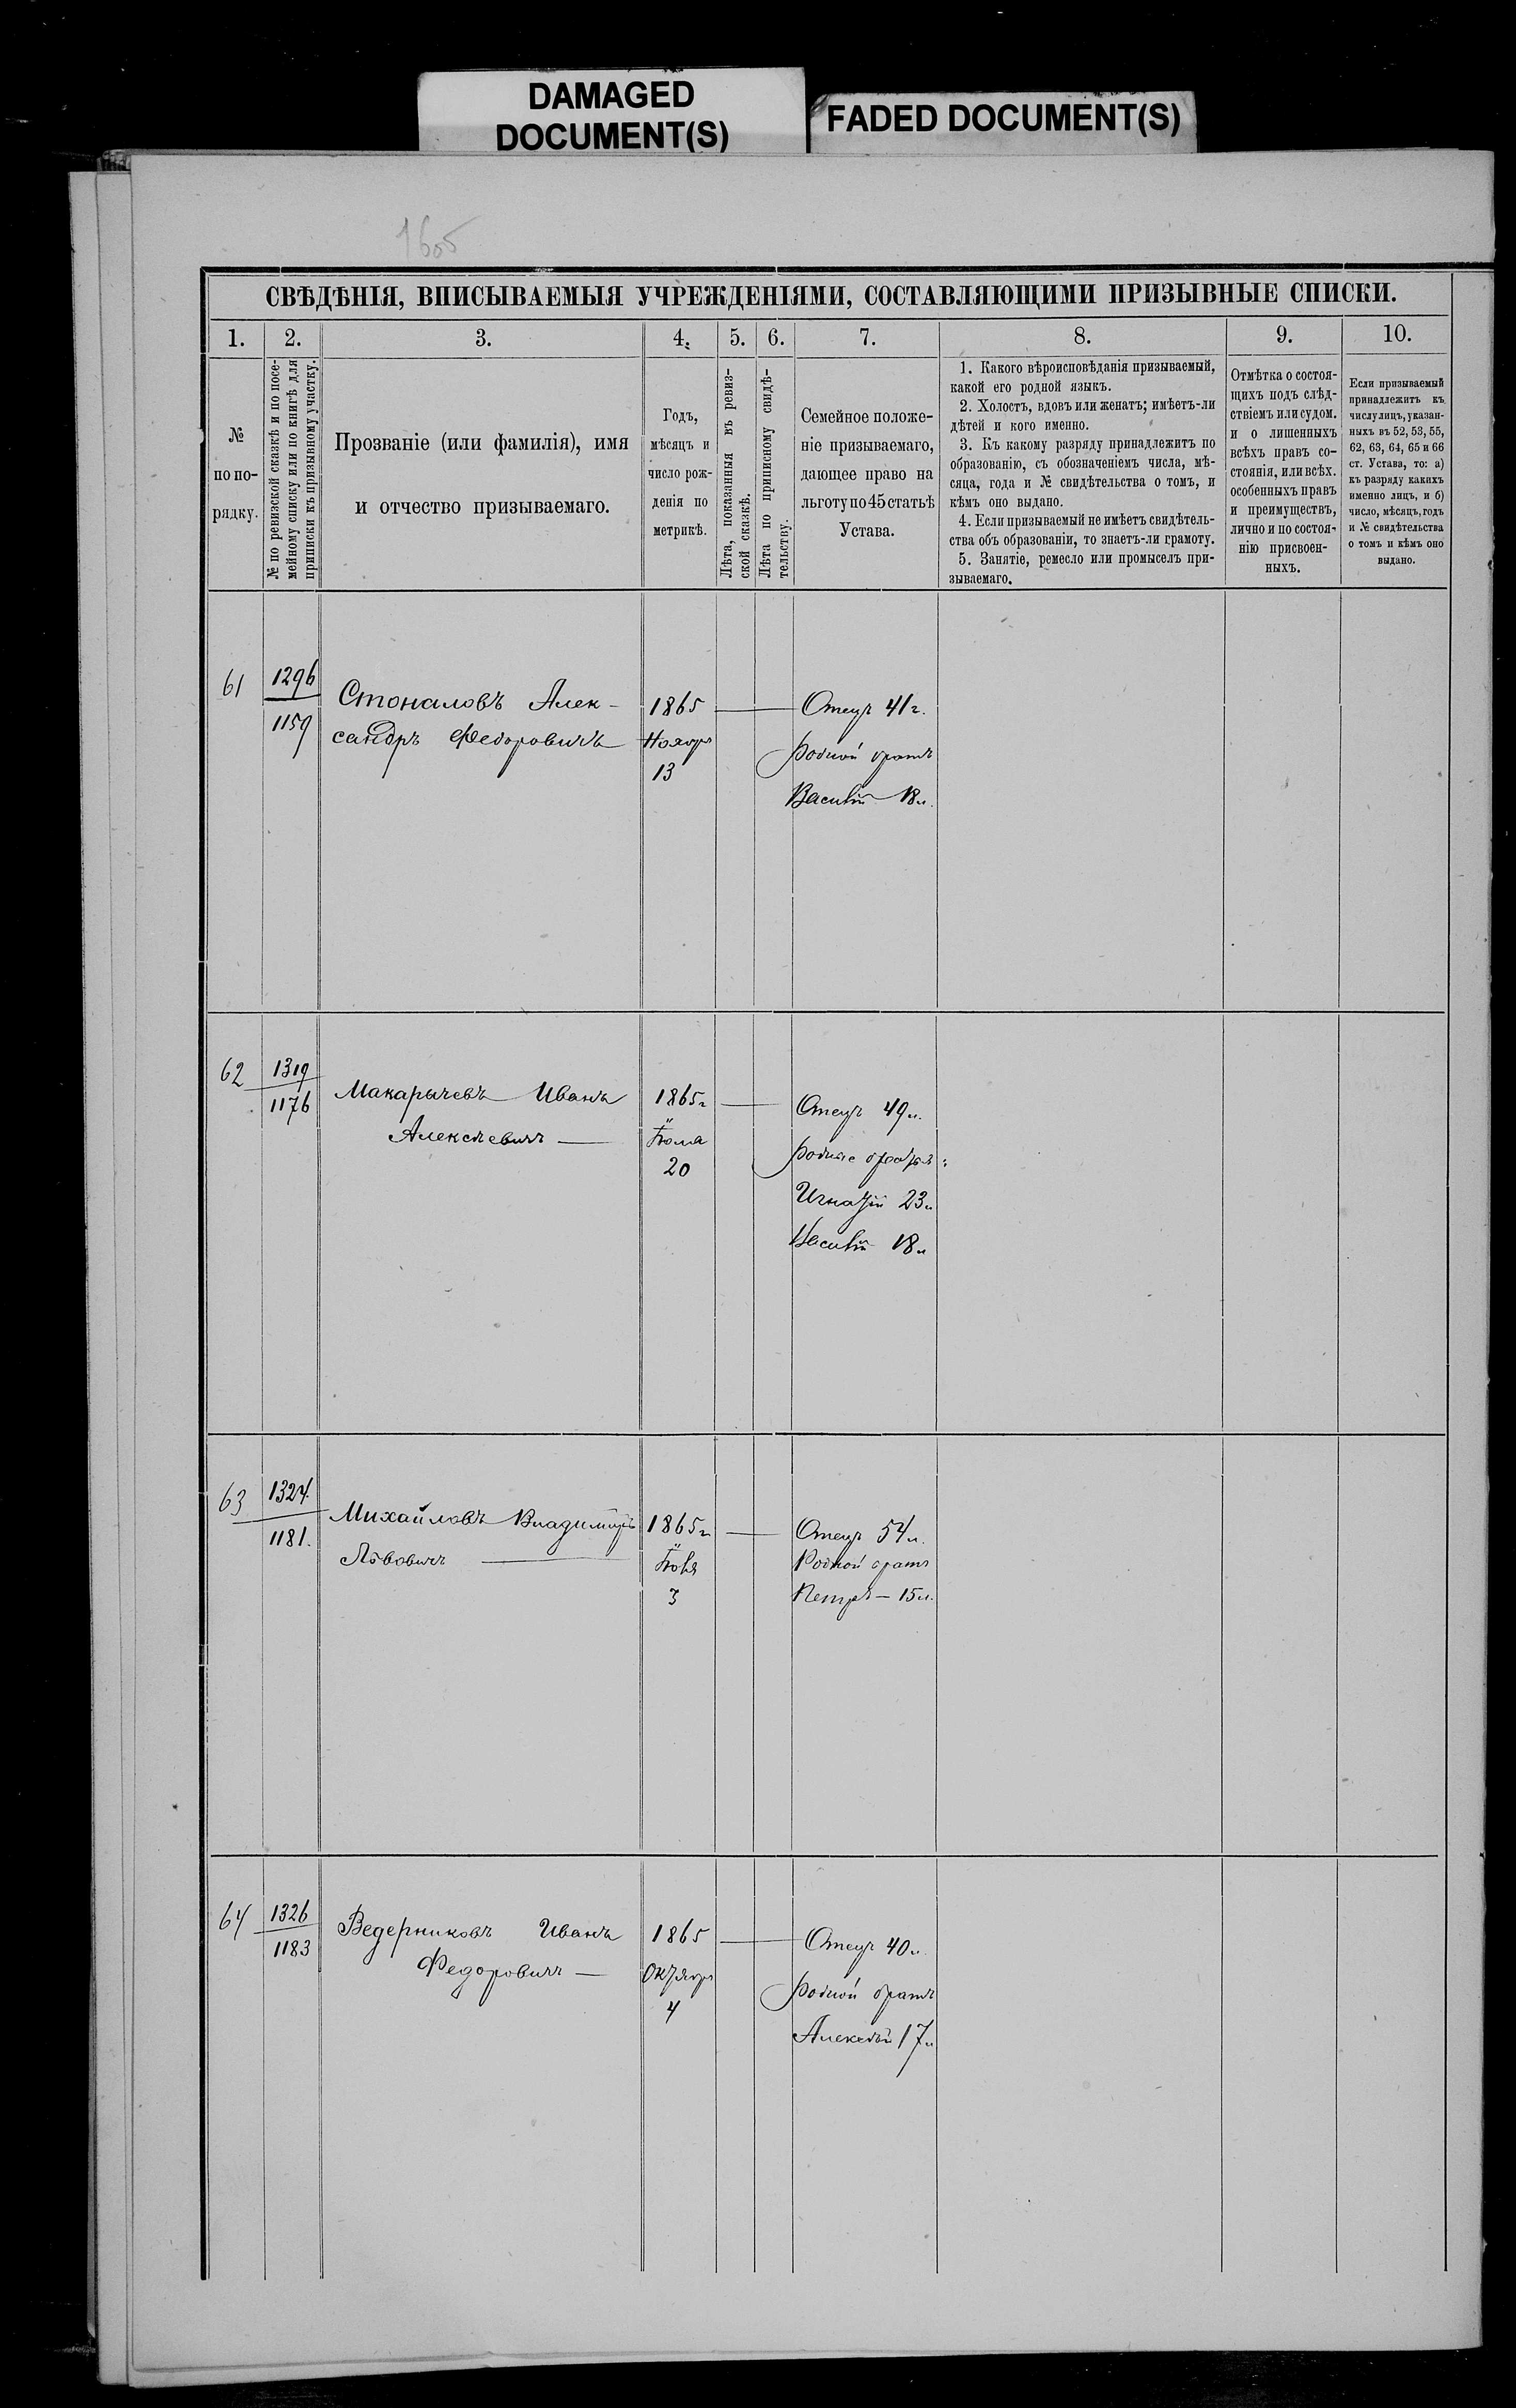 DAMAGED
DOCUMENT(S)
FADED DOCUMENT(S)
1605
СВѢДѢНІЯ, ВПИСЫВАЕМЫЯ УЧРЕЖДЕНІЯМИ, СОСТАВЛЯЮЩИМИ ПРИЗЫВНЫЕ СПИСКИ.
1.
2.
3.
4.
5.
6.
7.
8.
9.
10.
№
по по-
рядку.
№ по ревизской сказкѣ и по посе-
мейному списку или по книгѣ для
приписки къ призывному участку.
Прозваніе (или фамилія), имя
и отчество призываемаго.
Годъ,
мѣсяцъ и
число рож-
денія по
метрикѣ.
Лѣта, показанныя въ ревиз-
ской сказкѣ.
Лѣта по приписному свидѣ-
тельству.
Семейное положе-
ніе призываемаго,
дающее право на
льготу по 45 статьѣ
Устава.
1. Какого вѣроисповѣданія призываемый,
какой его родной языкъ.
2. Холостъ, вдовъ или женатъ; имѣетъ-ли
дѣтей и кого именно.
3. Къ какому разряду принадлежитъ по
образованію, съ обозначеніемъ числа, мѣ-
сяца, года и № свидѣтельства о томъ, и
кѣмъ оно выдано.
4. Если призываемый не имѣетъ свидѣтель-
ства объ образованіи, то знаетъ-ли грамоту.
5. Занятіе, ремесло или промыселъ при-
зываемаго.
Отмѣтка о состоя-
щихъ подъ слѣд-
ствіемъ или судом.
и о лишенныхъ
всѣхъ правъ со-
стоянія, или всѣх.
особенныхъ правъ
и преимуществъ,
лично и по состоя-
нію присвоен-
ныхъ.
Если призываемый
принадлежитъ къ
числу лицъ, указан-
ныхъ въ 52, 53, 55,
62, 63, 64, 65 и 66
ст. Устава, то: а)
къ разряду какихъ
именно лицъ, и б)
число, мѣсяцъ, годъ
и № свидѣтельства
о томъ и кѣмъ оно
выдано.
61
1296
1159
Стоналовъ Алек-
сандръ Федоровичъ
1865
Ноября
13
Отецъ 41 г.
родной братъ
Василій 18 л.
62
1319
1176
Макарычевъ Иванъ
Алексѣевичъ
1865 г
Іюля
20
Отецъ 49 л.
родные братья:
Игнатій 23 л
Василій 18 л
63
1324.
1181.
Михайловъ Владиміръ
Львовичъ
1865 г
Іюля
3
Отецъ 54 л.
Родной братъ
Петръ — 15 л.
64
1326
1183
Ведерниковъ Иванъ
Федоровичъ —
1865
Октября
4
Отецъ 40 л.
родной братъ
Алексѣй 17 л